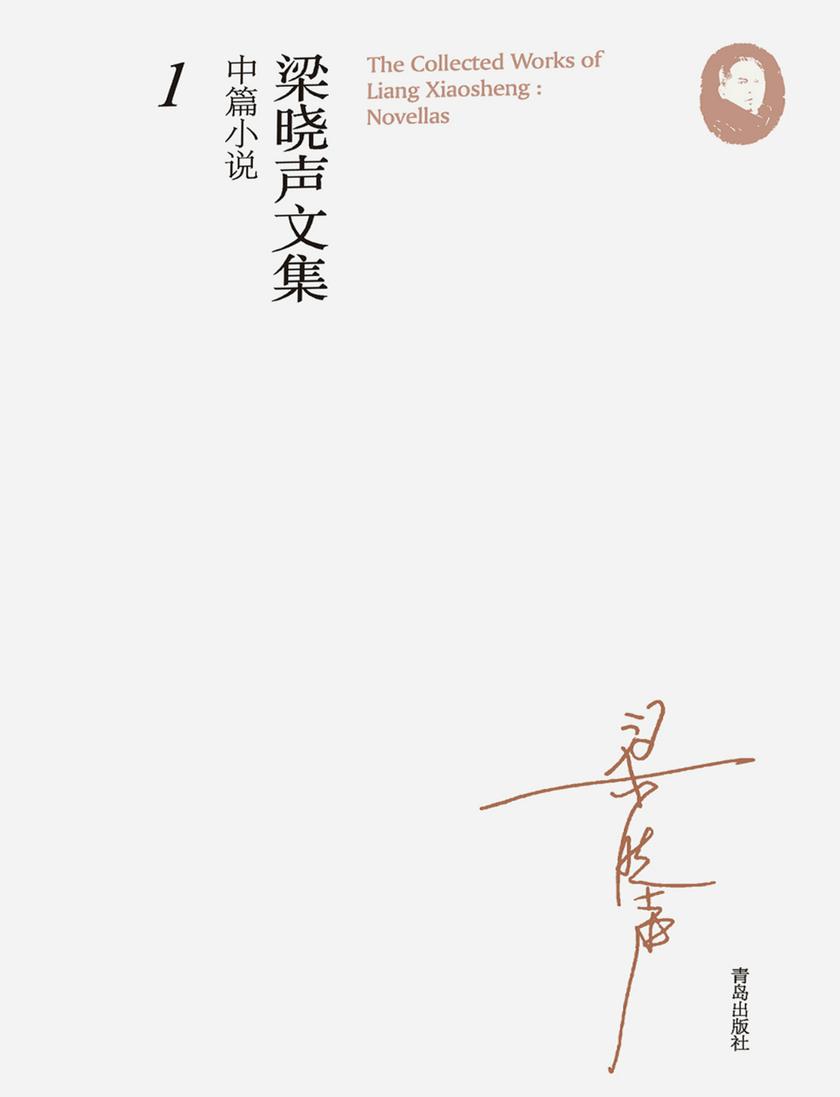 梁晓声文集
中篇小说
1
The Collected Works of
Liang Xiaosheng :
Novellas
梁晓声
青岛出版社